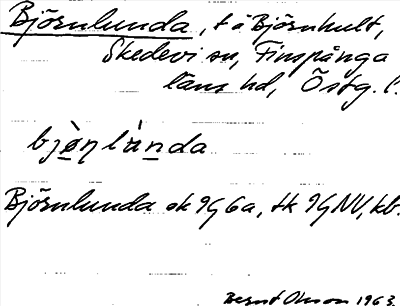 Björnlunda, t å Björnhult,
Skedevi sn, Finspånga
läns hd, Östg. l.
bjò̤ṇlùnda
Björnlunda ek 9G6a, tk 9GNV, kb.
Bernt Olsson 1963